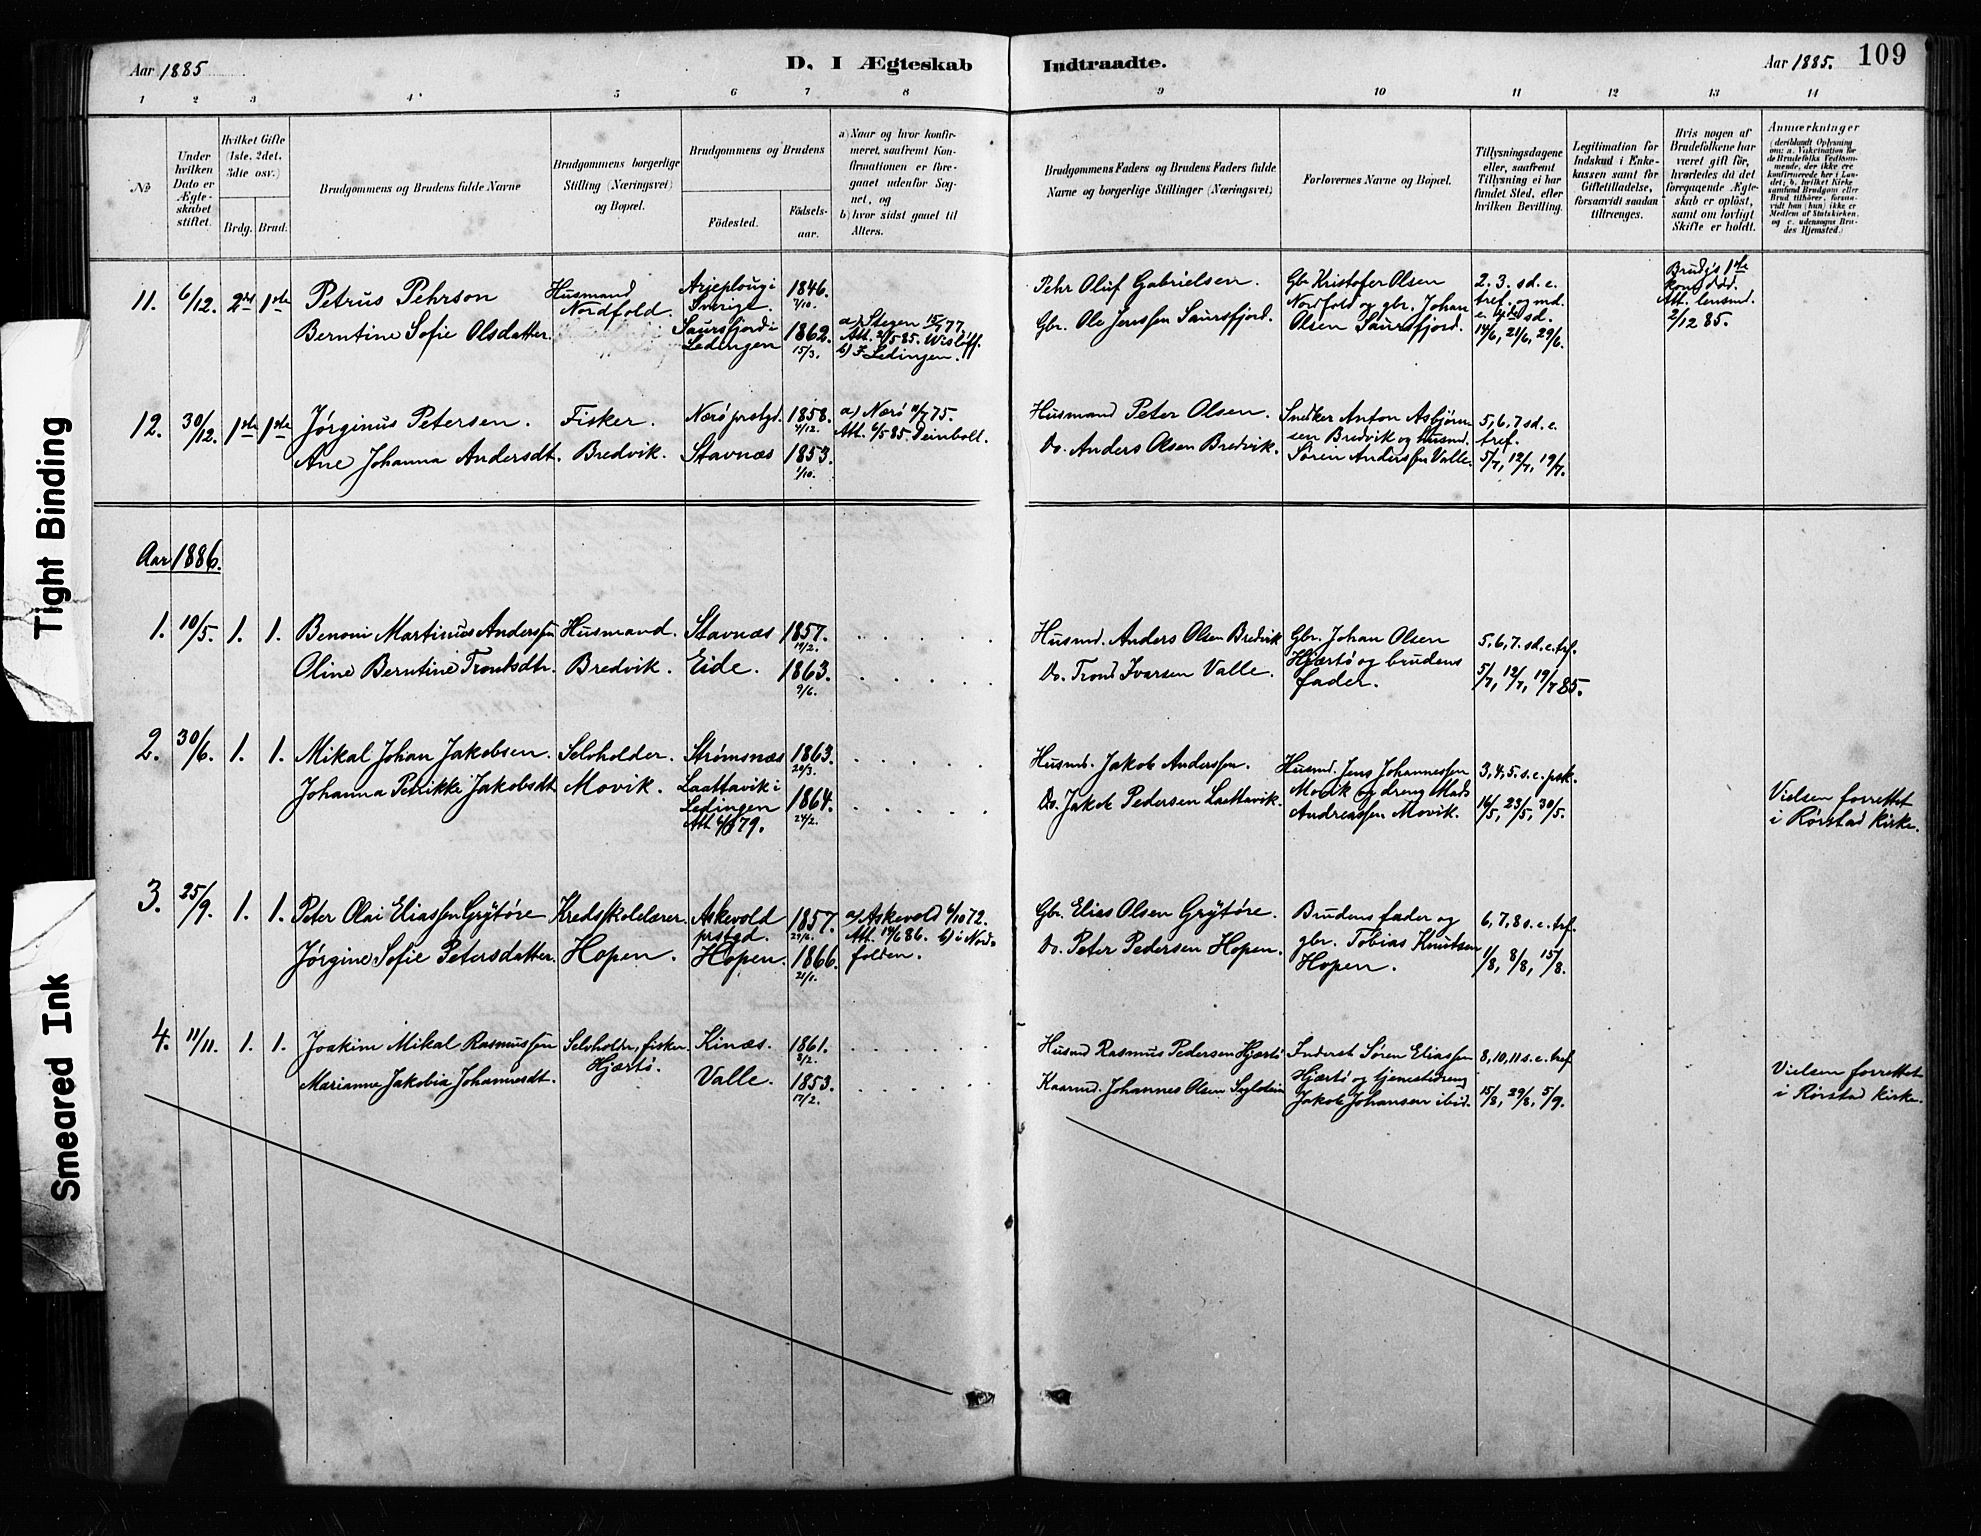 Aar 1885
D. I Ægteskab
Indtraadte.
Aar 1885.
109
1 2 3 4 5 6 7 8 9 10 11 12 13 14
No
Under hvilken Dato er Ægteskabet stiftet.
Hvilket Gifte (1ste, 2det, 3die osv.)
Brdg. Brud.
Brudgommens og Brudens fulde Navne
Brudgommens borgerlige Stilling (Næringsvei) og Bopæl.
Brudgommens og Brudens
Fødested.
Fødsels-aar.
a) Naar og hvor konfirmeret, saafremt Konfirmationen er foregaaet udenfor Sognet, og
b) hvor sidst gaaet til Alters.
Brudgommens Faders og Brudens Faders fulde Navne og borgerlige Stillinger (Næringsvei)
Forlovernes Navne og Bopæl.
Tillysningsdagene eller, saafremt Tillysning ei har fundet Sted, efter hvilken Bevilling.
Legitimation for Indskud i Enkekassen samt for Giftetilladelse, forsaavidt saadan tiltrænges.
Hvis nogen af Brudefolkene har været gift før, hvorledes da det foregaaende Ægteskab er opløst, samt om lovligt Skifte er holdt.
Anmærkninger (deriblandt Oplysning om: a. Vakcination for de Brudefolks Vedkommende, der ikke ere konfirmerede her i Landet; b. hvilket Kirkesamfund Brudgom eller Brud tilhører, forsaavidt han (hun) ikke er Medlem af Statskirken, og c. udensogns Brudes Hjemsted.)
11. 6/12. 2det 1ste Petrus Pehrson Husmand Nordfold. Arjeploug i Sverige. 1846. 7/10.
Berntine Sofie Olsdatter. Saursfjord i Ledingen 1862. 15/3. a) Stegen 15/7 77. Att. 2/5 85. Wisløff. b) I Ledingen.
Pehr Oluf Gabrielsen. Gbr. Kristofer Olsen
Gbr. Ole Jenssen Saursfjord. Nordfold og gbr. Johan Olsen Saursfjord.
2. 3. sd. e. tref. og md. 14/6, 21/6, 29/6.
Brudg's 1ste kone død. Att. lensmd. 2/12 85.
12. 30/12. 1ste 1ste Jørginus Petersen. Fisker. Nærø prstgd. 1858. 4/12. a) Nærø 11/7 75. Att. 6/5 85. Deinbolt.
Ane Johanna Andersdt. Bredvik. Stavnæs 1853. 1/10.
Husmand Peter Olsen. Snedker Anton Asbjørnsen Bredvik og husmd.
Do. Anders Olsen Bredvik. Søren Anderssen Valle.
5, 6, 7 sd. e. tref. 5/7, 12/7, 19/7.
Aar 1886.
1. 10/5. 1. 1. Benoni Martinus Anderssen Husmand. Stavnæs 1857. 19/2.
Oline Berntine Trondsdtr. Bredvik. Eide. 1863. 9/6.
Husmd. Anders Olsen Bredvik Gbr. Johan Olsen
Do. Trond Ivarsen Valle. Hjærtø og brudens fader.
5, 6, 7. sd. e. trf. 5/7, 12/7, 19/7 85.
2. 30/6. 1. 1. Mikal Johan Jakobsen. Selvholder. Strømsnæs 1863. 20/3.
Johanna Petrikke Jakobsdt. Movik. Laattavik i Ledingen 1864. 24/2.
Husmd. Jakob Anderssen. Husmd. Jens Johannessen
Do. Jakob Pedersen Laattavik. Movik og dreng Mads Andreassen Movik.
3, 4, 5. s. e. psk. 16/5, 23/5, 30/5.
Vielsen forrettet i Rørstad kirke.
3. 25/9. 1. 1. Peter Olai Eliassen Grytøre Kredsskolelærer Askevold prstgd. 1857. a) Askevold 6/10 72. Att. 14/6 86. b) i Nordfolden.
Jørgine Sofie Petersdatter. Hopen. Hopen. 1866. 21/1.
Gbr. Elias Olsen Grytøre. Brudens fader og
Do. Peter Pedersen Hopen. gbr. Tobias Knutsen Hopen.
6, 7, 8 s. e. trf. 1/8, 8/8, 15/8.
4. 11/11. 1. 1. Joakim Mikal Rasmussen Selvholder, fisker Kinæs. 1861. 8/2.
Marianna Jakobia Johannesdt. Hjærtø. Valle. 1853. 17/2.
Husmd Rasmus Pedersen Hjærtø Inderst Søren Eliassen
Kaarmd. Johannes Olsen Hjærtø og tjenestedreng Jakob Johansen ibid.
8, 10, 11 s. e. tref 15/8, 29/8, 5/9.
Vielsen forrettet i Rørstad kirke.
Tight Binding
Smeared Ink